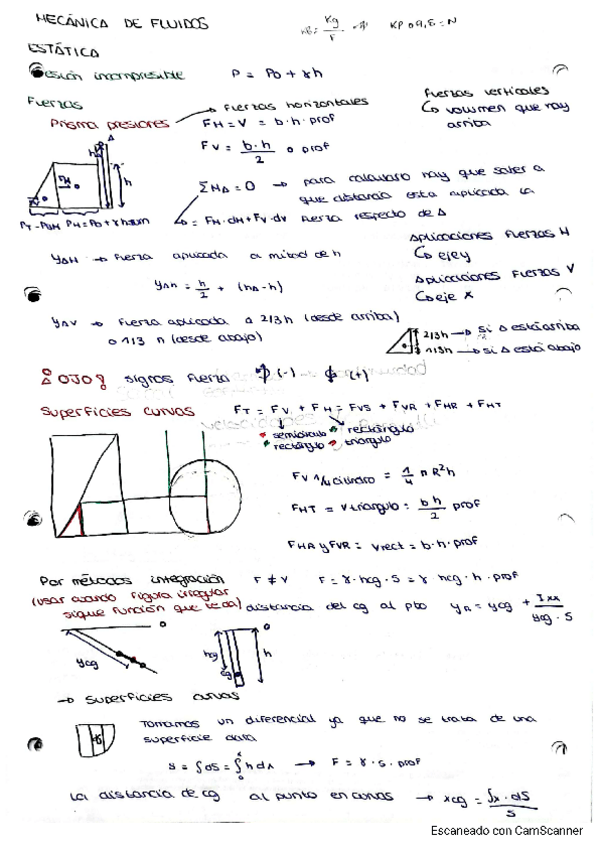 MECÁNICA DE FLUIDOS
Kg
KP · 9,8 = N
ESTÁTICA
esión incompresible P = Po + γh
Fuerzas
Fuerzas horizontales
Fuerzas verticales
volumen que hay
arriba
Prisma presiones
FH = V = b·h·prof
FV = b·h / 2 · prof
ΣMΔ = 0 → para calcularlo hay que saber a
que distancia esta aplicada la
= FH·dH + FV·dV fuerza respecto de Δ
h
Aplicaciones Fuerzas H
eje y
YΔH → Fuerza aplicada a mitad de h
YΔH = h/2 + (hΔ-h)
Aplicaciones Fuerzas V
eje x
YΔV → Fuerza aplicada a 2/3h (desde arriba)
o 1/3 h (desde abajo)
2/3h → si Δ está arriba
1/3h → si Δ está abajo
OJO signos fuerza (-) (+)
Superficies curvas
FT = FV + FH = FVS + FVR + FHR + FHT
semicirculo rectángulo
rectángulo triangulo
FV 1/4 cilindro = 1/4 π R²h
FHT = V triangulo = bh/2 prof
FHR y FVR = Vrect = b·h·prof
Por métodos integración F ≠ V F = γ·hcg·S = γ hcg·h·prof
(usar cuando figura irregular
sigue función que te da) distancia del cg al pto YR = Ycg + Ixx / Ycg·S
O
O
Ycg
hcg
cg
h
→ Superficies curvas
Tomamos un diferencial ya que no se trata de una
superficie clara
S = ∫dS = ∫h dx → F = γ·S·prof
La distancia de cg al punto en curvas → Xcg = ∫x·dS / S
Escaneado con CamScanner